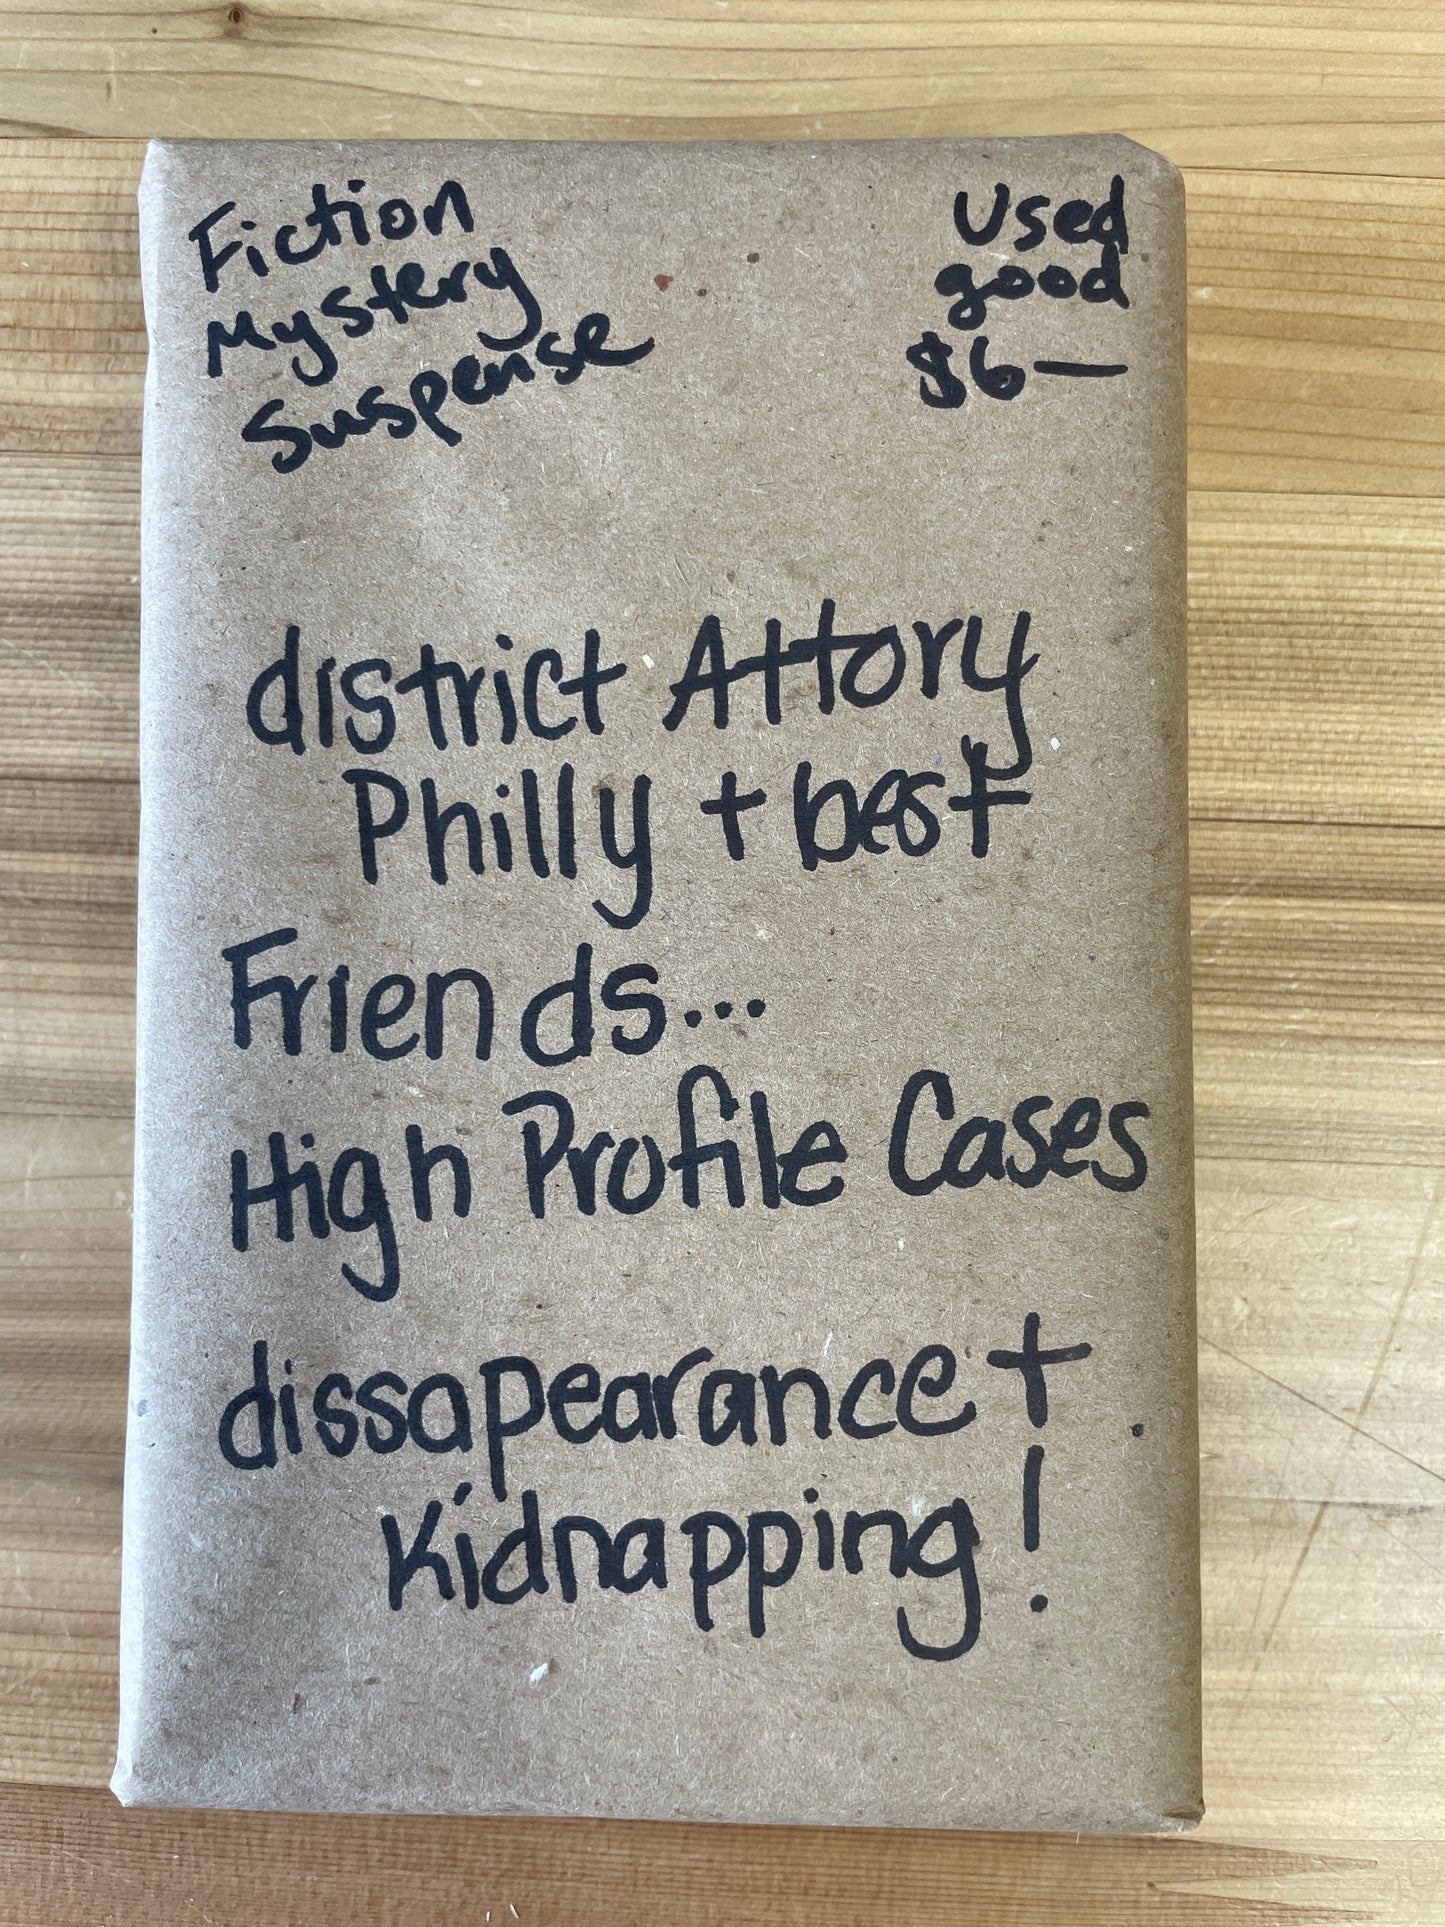 Fiction
Mystery
Suspense
Used
good
$6—
district Attory
Philly + best
Friends...
High Profile Cases
dissapearance +
Kidnapping!